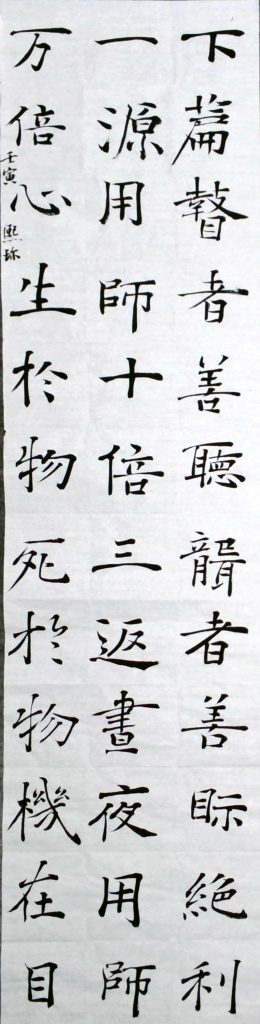 下篇瞽者善聽聾者善眎絕利
一源用師十倍三返晝夜用師
万倍心生於物死於物機在目
壬寅熙珎